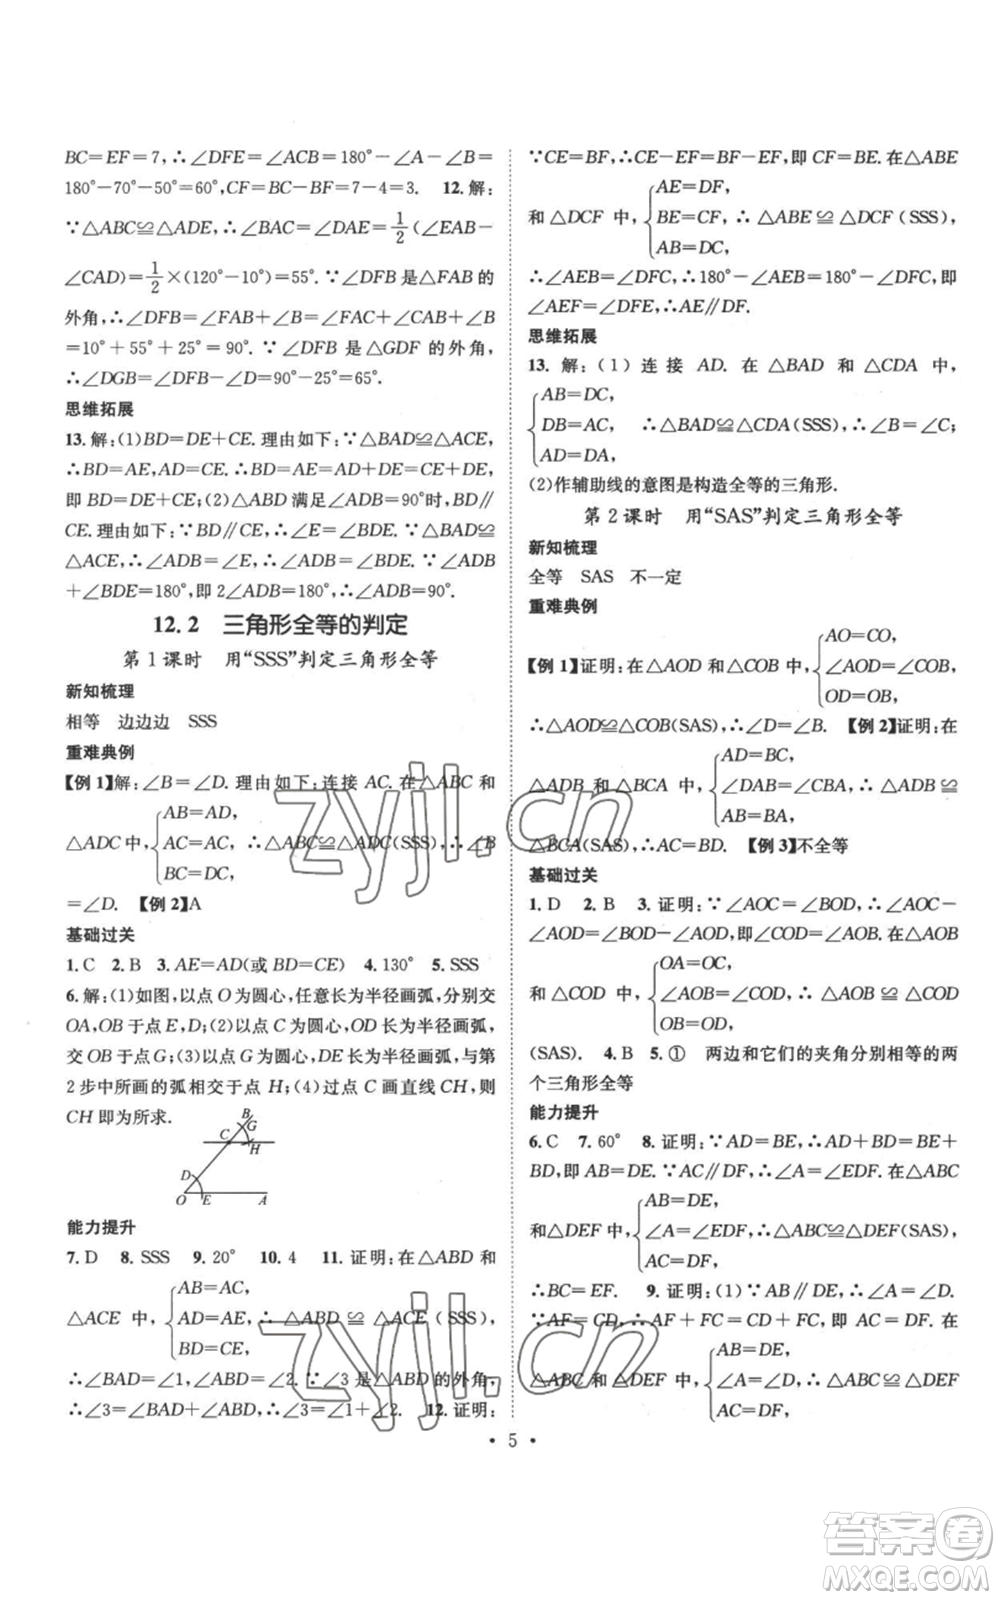 BC=EF=7,∴∠DFE=∠ACB=180°-∠A-∠B=
180°-70°-50°=60°,CF=BC-BF=7-4=3. 12.解:
∵△ABC≌△ADE,∴∠BAC=∠DAE=1/2(∠EAB-
∠CAD)=1/2×(120°-10°)=55°.∵∠DFB是△FAB的
外角,∴∠DFB=∠FAB+∠B=∠FAC+∠CAB+∠B
=10°+55°+25°=90°.∵∠DFB是△GDF的外角,
∴∠DGB=∠DFB-∠D=90°-25°=65°.
思维拓展
13.解:(1)BD=DE+CE.理由如下:∵△BAD≌△ACE,
∴BD=AE,AD=CE.∵AE=DE+AD,∴BD=DE+CE,
即BD=DE+CE;(2)△ABD满足∠ADB=90°时,BD∥
CE.理由如下:∵BD∥CE,∴∠E=∠BDE.∵△BAD≌
△ACE,∴∠ADB=∠E,∴∠ADB=∠BDE.又∵∠ADB
+∠BDE=180°,即2∠ADB=180°,∴∠ADB=90°.
12.2 三角形全等的判定
第1课时 用“SSS”判定三角形全等
新知梳理
相等 边边边 SSS
重难典例
【例1】解:∠B=∠D.理由如下:连接AC.在△ABC和
△ADC中,{AB=AD,
AC=AC,∴△ABC≌△ADC(SSS),∴∠B
BC=DC,
=∠D. 【例2】A
基础过关
1.C 2.B 3.AE=AD(或BD=CE) 4.130° 5.SSS
6.解:(1)如图,以点O为圆心,任意长为半径画弧,分别交
OA,OB于点E,D;(2)以点C为圆心,OD长为半径画弧,
交OB于点G;(3)以点G为圆心,DE长为半径画弧,与第
2步中所画的弧相交于点H;(4)过点C画直线CH,则
CH即为所求.
B
C G
H
D
O E A
能力提升
7.D 8.SSS 9.20° 10.4 11.证明:在△ABD和
△ACE中,{AB=AC,
AD=AE,∴△ABD≌△ACE(SSS),
BD=CE,
∴∠BAD=∠1,∠ABD=∠2.∵∠3是△ABD的外角,
∴∠3=∠BAD+∠ABD,∴∠3=∠1+∠2. 12.证明:
∵CE=BF,∴CE-EF=BF-EF,即CF=BE.在△ABE
和△DCF中,{AE=DF,
BE=CF,∴△ABE≌△DCF(SSS),
AB=DC,
∴∠AEB=∠DFC,∴180°-∠AEB=180°-∠DFC,即
∠AEF=∠DFE,∴AE∥DF.
思维拓展
13.解:(1)连接AD.在△BAD和△CDA中,
{AB=DC,
DB=AC,∴△BAD≌△CDA(SSS),∴∠B=∠C;
AD=DA,
(2)作辅助线的意图是构造全等的三角形.
第2课时 用“SAS”判定三角形全等
新知梳理
全等 SAS 不一定
重难典例
【例1】证明:在△AOD和△COB中,{AO=CO,
∠AOD=∠COB,
OD=OB,
∴△AOD≌△COB(SAS),∴∠D=∠B. 【例2】证明:在
△ADB和△BCA中,{AD=BC,
∠DAB=∠CBA,∴△ADB≌
AB=BA,
△BCA(SAS),∴AC=BD. 【例3】不全等
基础过关
1.D 2.B 3.证明:∵∠AOC=∠BOD,∴∠AOC-
∠AOD=∠BOD-∠AOD,即∠COD=∠AOB.在△AOB
和△COD中,{OA=OC,
∠AOB=∠COD,∴△AOB≌△COD
OB=OD,
(SAS). 4.B 5.① 两边和它们的夹角分别相等的两
个三角形全等
能力提升
6.C 7.60° 8.证明:∵AD=BE,∴AD+BD=BE+
BD,即AB=DE.∵AC∥DF,∴∠A=∠EDF.在△ABC
和△DEF中,{AB=DE,
∠A=∠EDF,∴△ABC≌△DEF(SAS),
AC=DF,
∴BC=EF. 9.证明:(1)∵AB∥DE,∴∠A=∠D.
∵AF=CD,∴AF+FC=CD+FC,即AC=DF.在
△ABC和△DEF中,{AB=DE,
∠A=∠D,∴△ABC≌△DEF
AC=DF,
·5·
zyjl.cn
zyjl.cn
答案卷
MXQE.COM